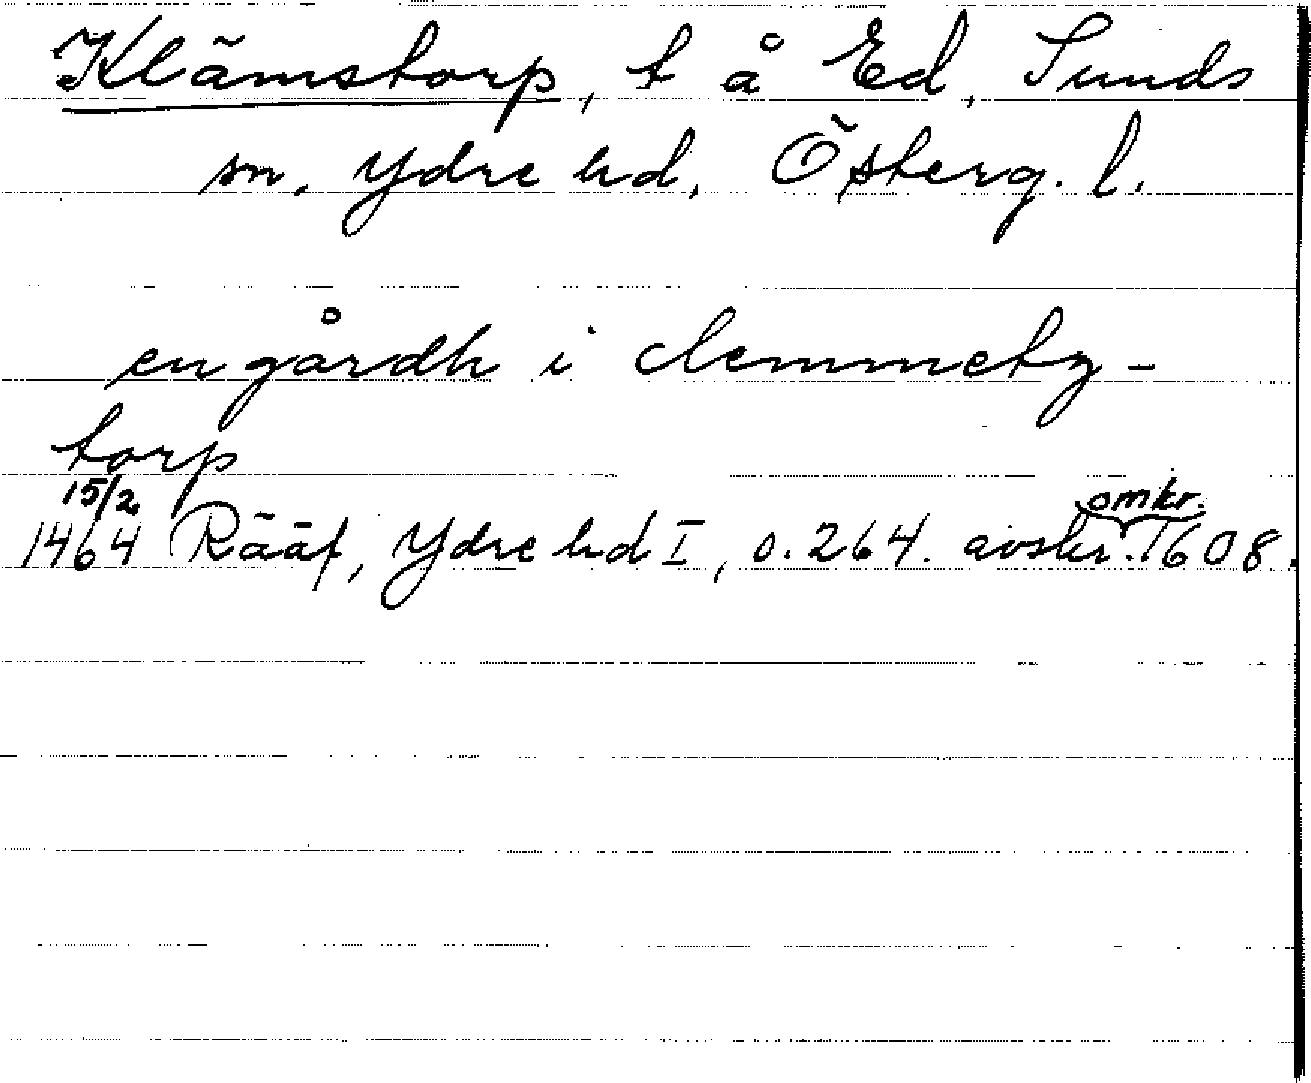 Klämstorp, t å Ed, Sunds
sn, Ydre hd, Österg. l.
en gårdh i clemmetz-
torp
15/2 omkr.
1464 Rääf, Ydre hd I, s. 264. avskr. 1608.